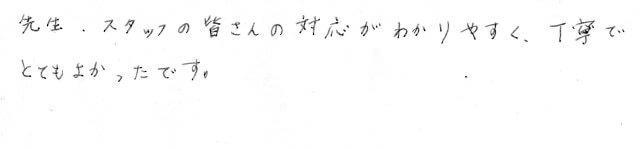 先生、スタッフの皆さんの対応がわかりやすく、丁寧で
とてもよかったです。